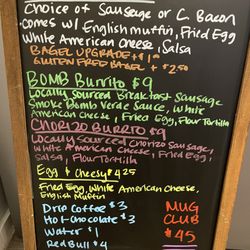 Choice of Sausage or C. Bacon
Comes w/ English muffin, Fried Egg
White American Cheese, Salsa
BAGEL UPGRADE + $1.00
GLUTEN FREE BAGEL + $2.50
BOMB Burrito $9
Locally Sourced Breakfast Sausage
Smoke Bomb Verde Sauce, White
American Cheese, Fried Egg, Flour Tortilla
CHORIZO BURRITO $9
Locally Sourced Chorizo Sausage,
White American Cheese, Fried Egg,
Salsa, Flour Tortilla
Egg & Cheesy $4.25
Fried Egg, White American Cheese,
English Muffin
Drip Coffee $3
Hot Chocolate $3
Water $1
Red Bull $4
MUG
CLUB
$45